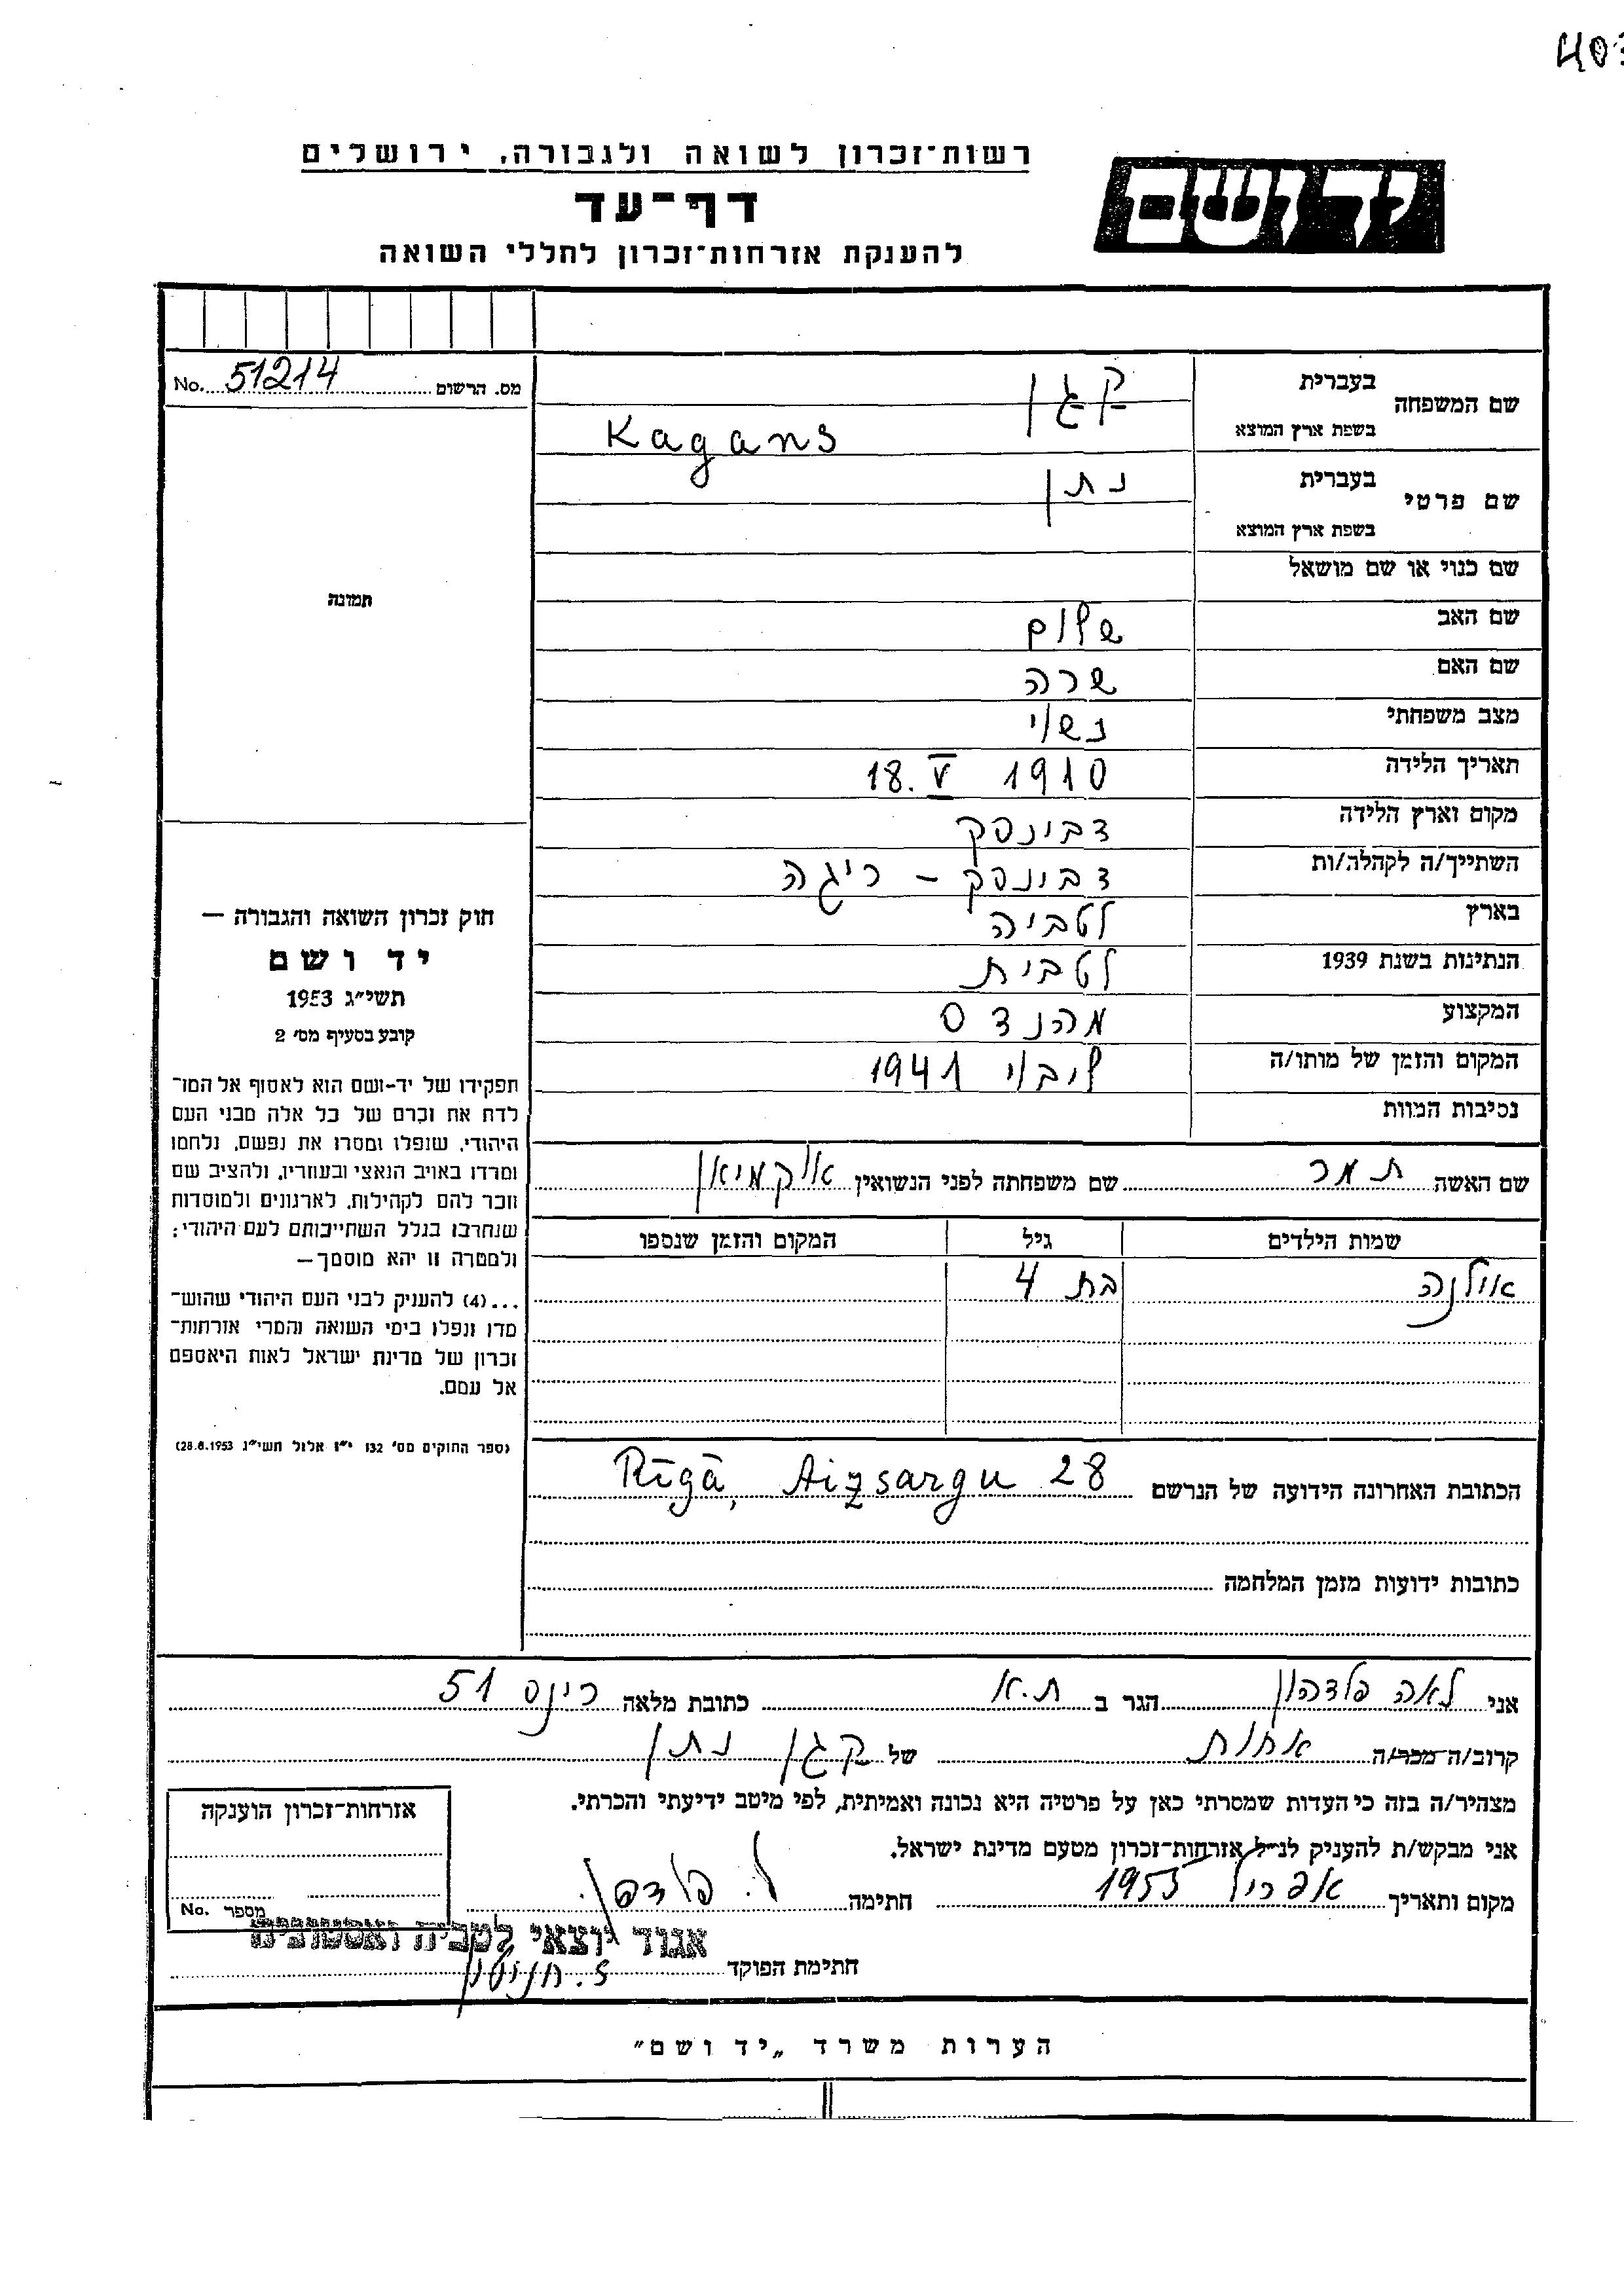 403
רשות־זכרון לשואה ולגבורה, ירושלים
יד ושם
דף־עד
להענקת אזרחות־זכרון לחללי השואה
מס. הרשום 51214 No.
שם המשפחה בעברית קגן
בשפת ארץ המוצא Kagans
שם פרטי בעברית נתן
בשפת ארץ המוצא
שם כנוי או שם מושאל
תמונה
שם האב שלום
שם האם שרה
מצב משפחתי נשוי
תאריך הלידה 18. V 1910
מקום וארץ הלידה דבינסק
השתייך/ה לקהלה/ות דבינסק – ריגה
בארץ לטביה
הנתינות בשנת 1939 לטבית
המקצוע מהנדס
המקום והזמן של מותו/ה ליבוי 1941
נסיבות המוות
חוק זכרון השואה והגבורה —
יד ושם
תשי״ג 1953
קובע בסעיף מס׳ 2
תפקידו של יד-ושם הוא לאסוף אל המו־
לדת את זכרם של כל אלה מבני העם
היהודי, שנפלו ומסרו את נפשם, נלחמו
ומרדו באויב הנאצי ובעוזריו, ולהציב שם
וזכר להם לקהילות, לארגונים ולמוסדות
שנחרבו בגלל השתייכותם לעם היהודי;
ולמטרה זו יהא מוסמך—
...(4) להעניק לבני העם היהודי שהוש־
מדו ונפלו בימי השואה והמרי אזרחות־
זכרון של מדינת ישראל לאות היאספם
אל עמם.
(ספר החוקים מס׳ 132 י״ז אלול תשי״ג 28.8.1953)
שם האשה תמר שם משפחתה לפני הנשואין
שמות הילדים גיל המקום והזמן שנספו
אולנה בת 4
הכתובת האחרונה הידועה של הנרשם Rīgā, Aizsargu 28
כתובות ידועות מזמן המלחמה
אני לאה פלדהון הגר ב ת.א כתובת מלאה רינס 51
קרוב/ה מכר/ה אחות של קגן נתן
מצהיר/ה בזה כי העדות שמסרתי כאן על פרטיה היא נכונה ואמיתית, לפי מיטב ידיעתי והכרתי.
אני מבקש/ת להעניק לנ״ל אזרחות־זכרון מטעם מדינת ישראל.
מקום ותאריך אפריל 1955 חתימה
אזרחות־זכרון הוענקה
מספר No.
אגוד יוצאי לטביה ואסטוניה
חתימת הפוקד
הערות משרד „יד ושם״